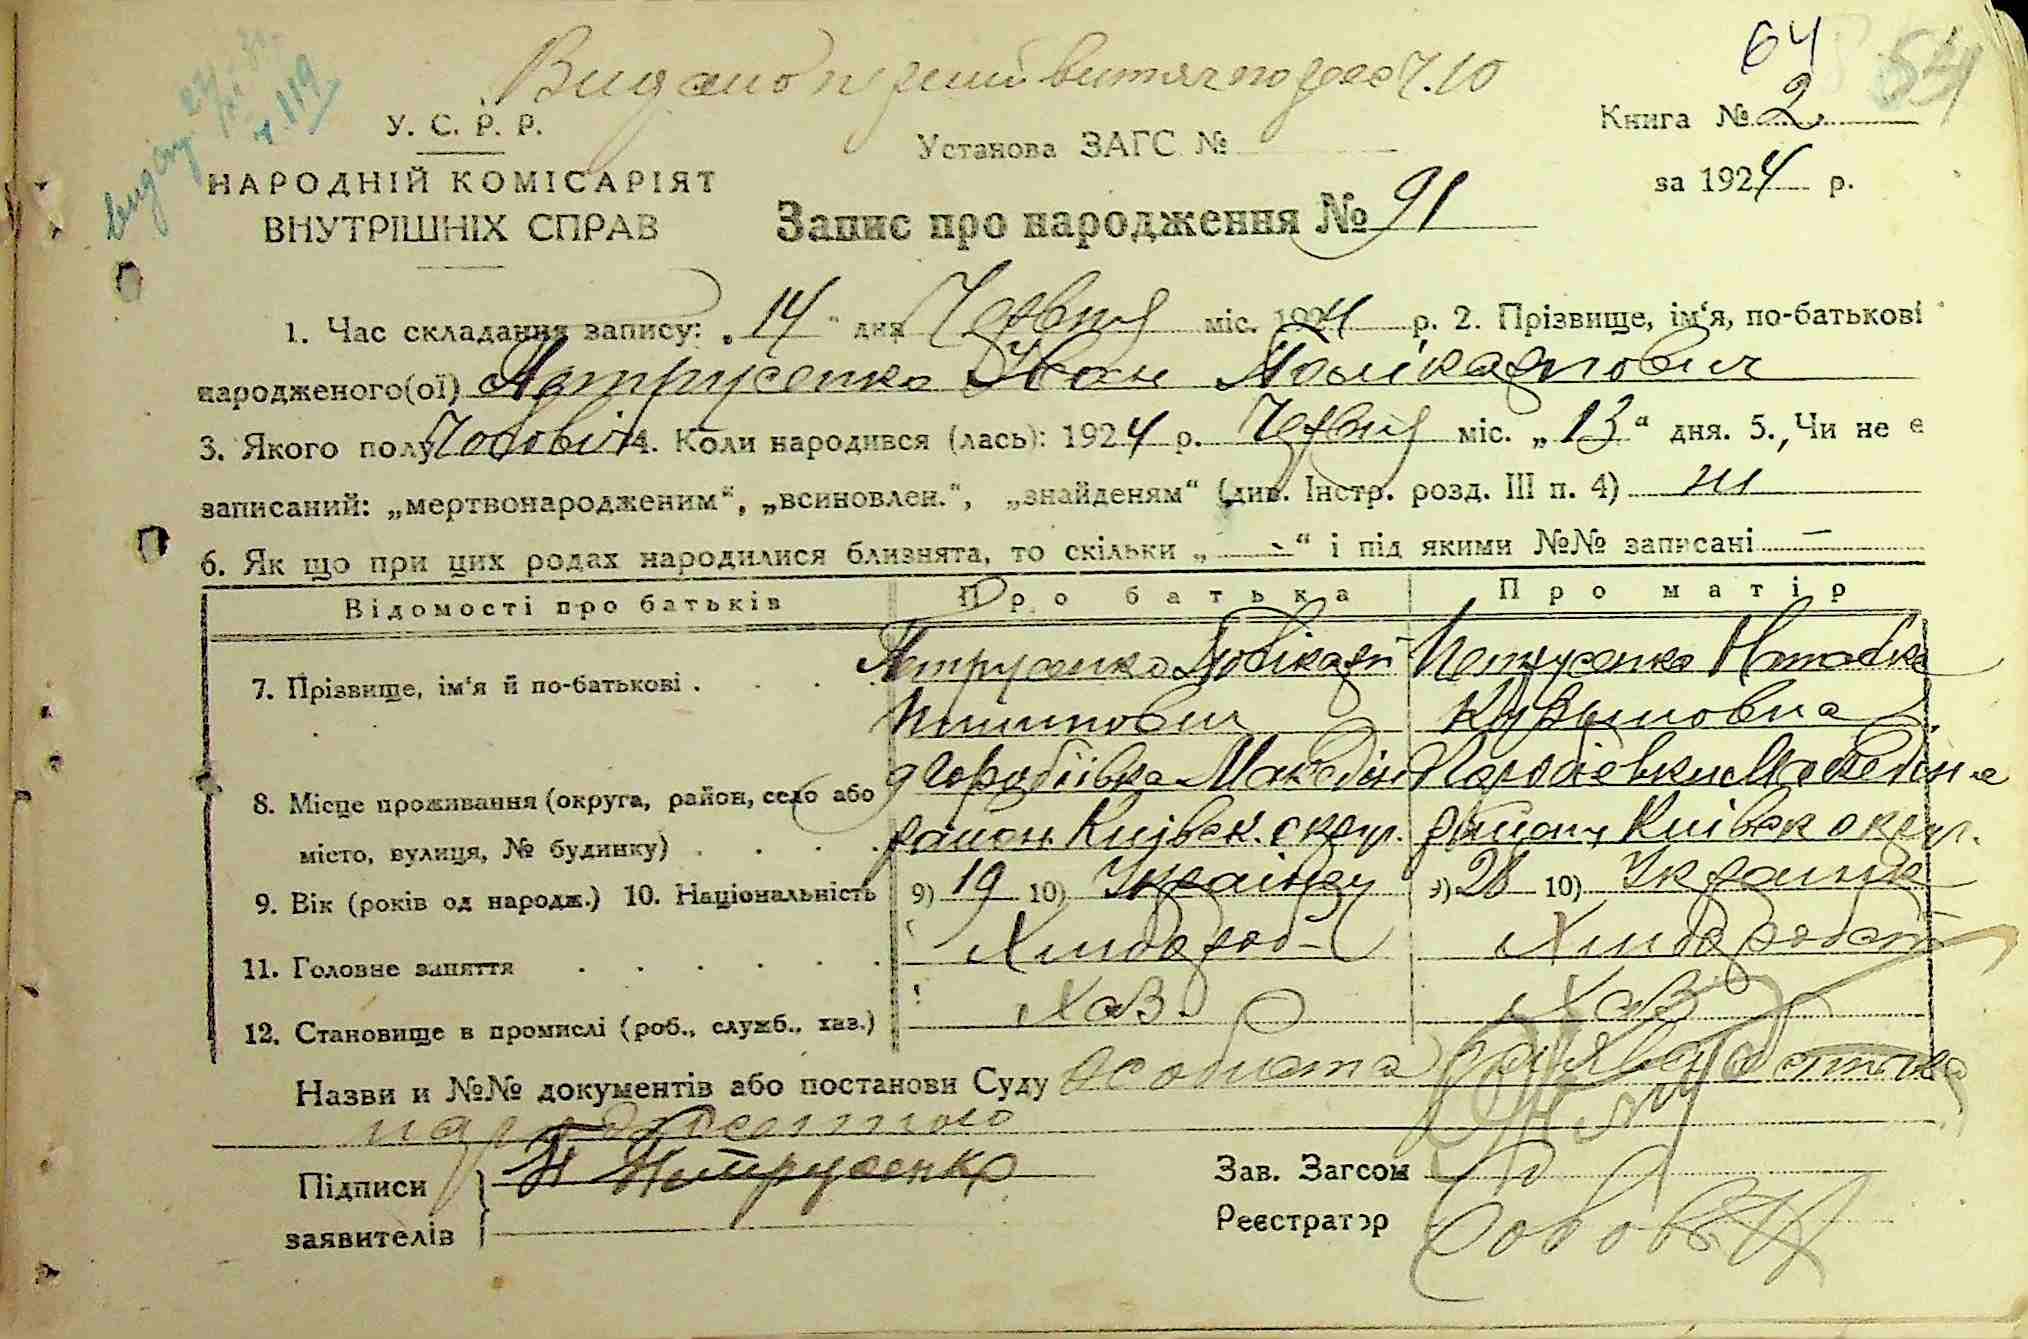 64 54
Видано ч. 10
видану ч. 119
У. С. Р. Р.
Установа ЗАГС №
Книга № 2
НАРОДНІЙ КОМІСАРІЯТ
за 1924 р.
ВНУТРІШНІХ СПРАВ
Запис про народження № 91
1. Час складання запису: „14“ дня Червня міс. 1924 р. 2. Прізвище, ім'я, по-батькові
народженого(ої) Петрусенко Іван Полікарпович
3. Якого полу Чоловіч 4. Коли народився (лась): 1924 р. Червня міс. „13“ дня. 5. Чи не є
записаний: „мертвонародженим“, „всиновлен.“, „знайденям“ (див. Інстр. розд. III п. 4) ні
6. Як що при цих родах народилися близнята, то скільки „-“ і під якими №№ записані —
Відомості про батьків Про батька Про матір
7. Прізвище, ім'я й по-батькові . Петрусенко Полікарп Петрусенко
Пилипович Кузьмовна
8. Місце проживання (округа, район, село або Горобіївка Макарів
місто, вулиця, № будинку) район. Київск. округ. району Київск округ.
9. Вік (років од народж.) 10. Національність 9) 19 10) Українец 9) 28 10) Україн
11. Головне заняття Хлибороб Хлибороб
12. Становище в промислі (роб., служб., хаз.) Хаз. Хаз
Назви и №№ документів або постанови Суду особиста заява
народженого
Підписи П Петрусенко Зав. Загсом
заявителів Реєстратор